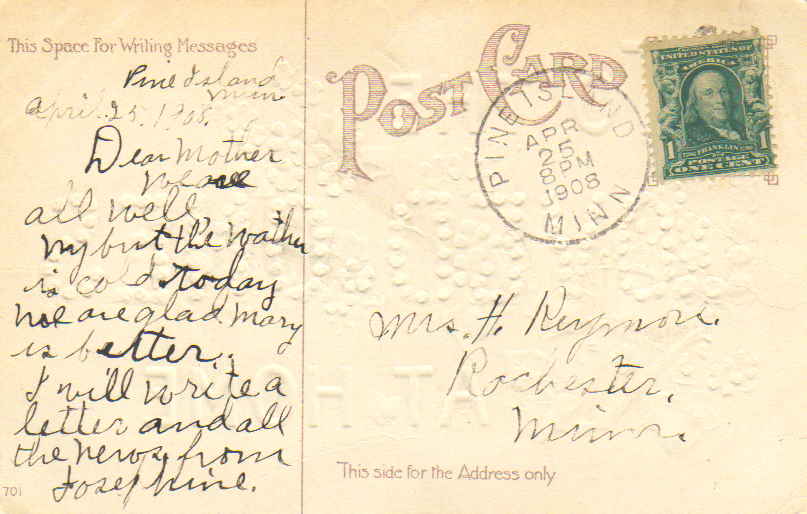 This Space For Writing Messages
Pine Island
Minn
April. 25. 1908.
Dear Mother
We are
all well,
but the wather
is cold today
we are glad Mary
is better.
I will write a
letter and all
the news from
Josephine.
701
POST CARD
PINE ISLAND
APR
25
8 PM
1908
MINN
UNITED STATES OF
AMERICA
1 FRANKLIN 1
POSTAGE
ONE CENT
Mrs. H.
Rochester,
Minn.
This side for the Address only
AT HOME